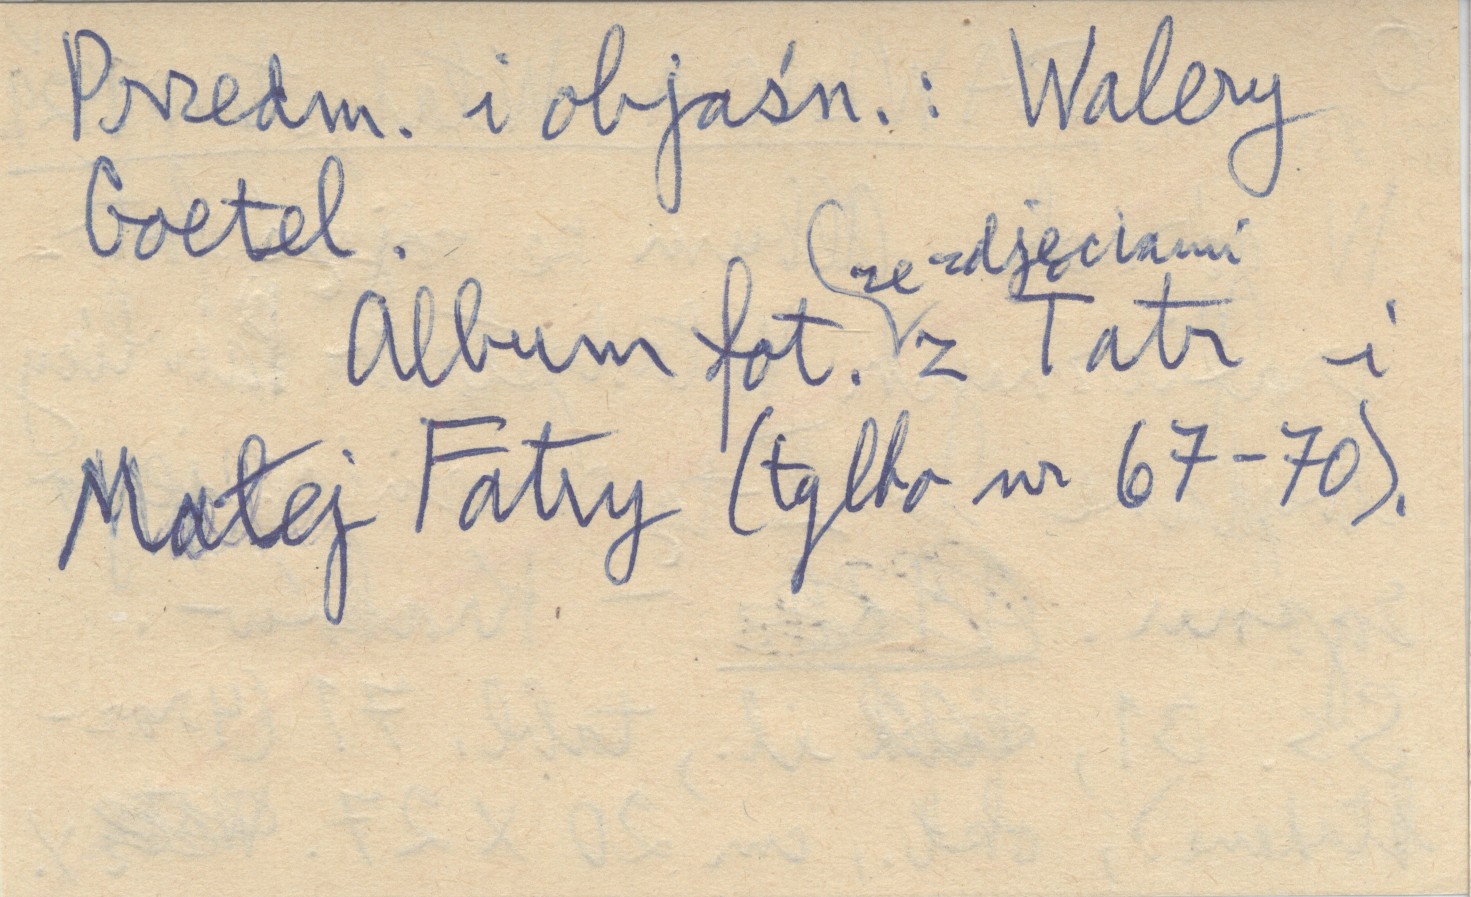 Przedm. i objaśn.: Walery
Goetel.
ze zdjęciami
Album fot. z Tatr i
Małej Fatry (tylko nr 67-70).